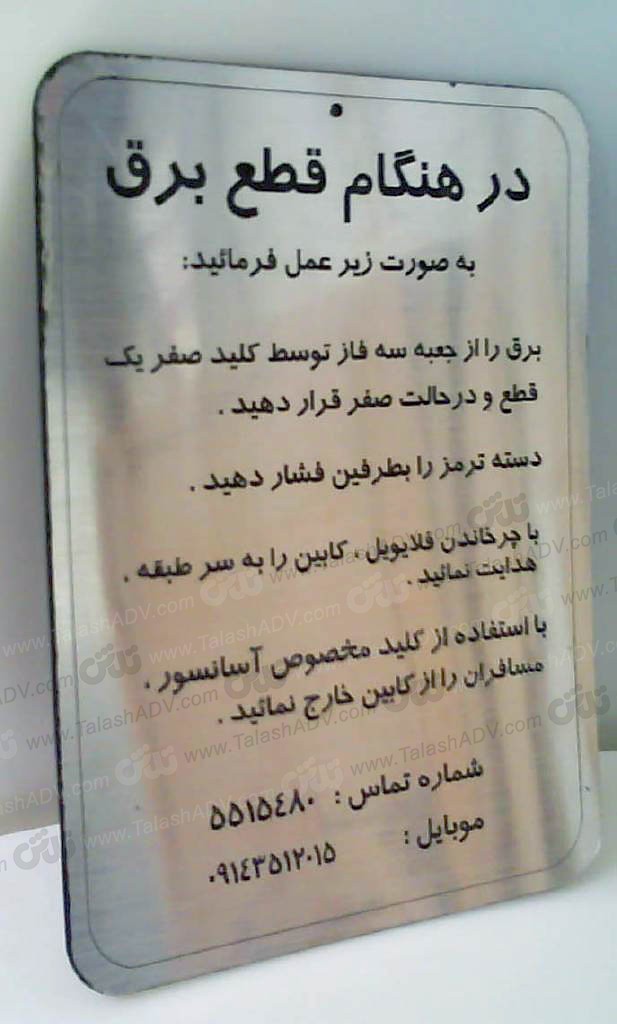 در هنگام قطع برق
به صورت زیر عمل فرمائید:
برق را از جعبه سه فاز توسط کلید صفر یک
قطع و درحالت صفر قرار دهید .
دسته ترمز را بطرفین فشار دهید .
با چرخاندن فلایویل ، کابین را به سر طبقه .
هدایت نمائید .
با استفاده از کلید مخصوص آسانسور .
مسافران را از کابین خارج نمائید .
شماره تماس : ۵۵۱۵٤۸۰
موبایل :
۰۹۱٤۳۵۱۲۰۱۵
www.TalashADV.com